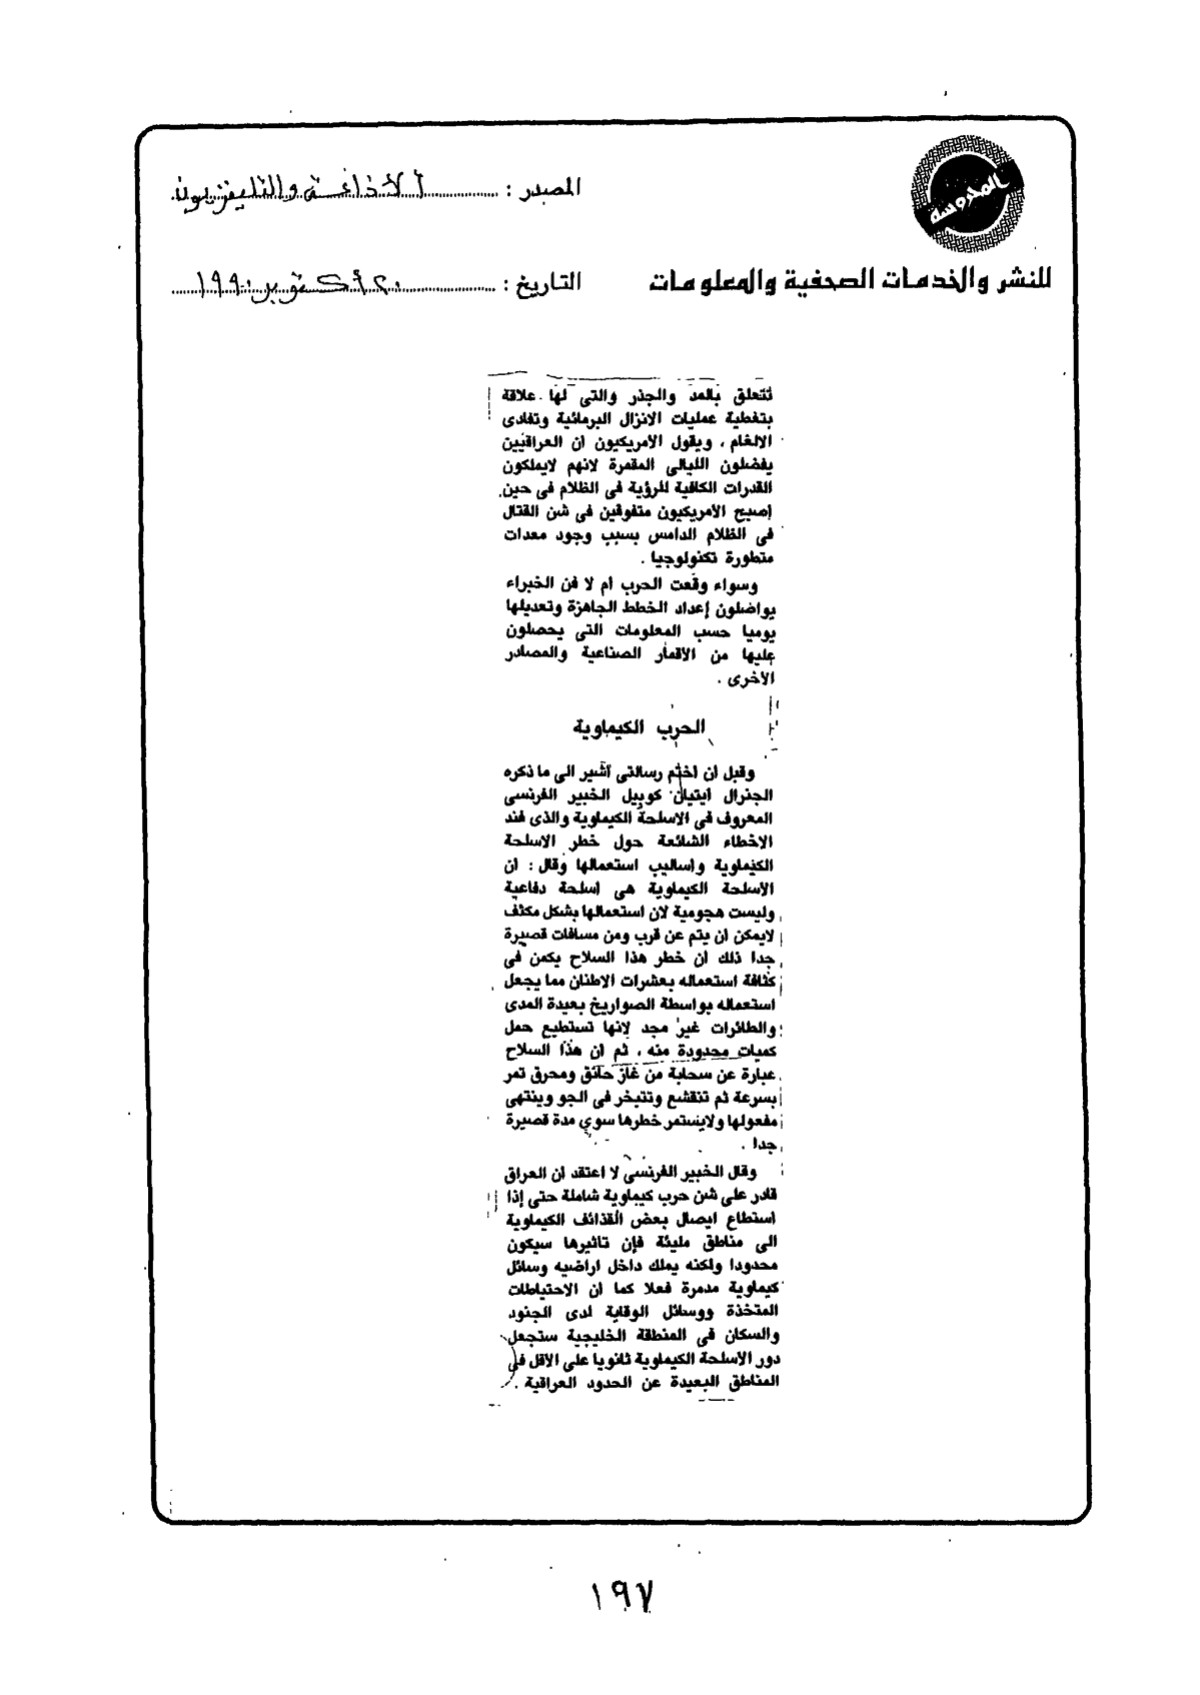 المحروسة
المصدر : الاذاعة والتليفزيون
للنشر والخدمات الصحفية والمعلومات
التاريخ : ٢٠ اكتوبر ١٩٩٠
تتعلق بالمد والجذر والتى لها علاقة
بتغطية عمليات الانزال البرمائية وتفادى
الالغام ، ويقول الامريكيون ان العراقيين
يفضلون الليالى المقمرة لانهم لايملكون
القدرات الكافية للرؤية فى الظلام فى حين
إصبح الأمريكيون متفوقين فى شن القتال
فى الظلام الدامس بسبب وجود معدات
متطورة تكنولوجيا .
وسواء وقعت الحرب ام لا فن الخبراء
يواصلون إعداد الخطط الجاهزة وتعديلها
يوميا حسب المعلومات التى يحصلون
عليها من الاقمار الصناعية والمصادر
الاخرى .
الحرب الكيماوية
وقبل ان اختم رسالتى اشير الى ما ذكره
الجنرال ايتيان كوبيل الخبير الفرنسى
المعروف فى الاسلحة الكيماوية والذى فند
الاخطاء الشائعة حول خطر الاسلحة
الكيماوية واساليب استعمالها وقال : ان
الاسلحة الكيماوية هى اسلحة دفاعية
وليست هجومية لان استعمالها بشكل مكثف
لايمكن ان يتم عن قرب ومن مسافات قصيرة
جدا ذلك ان خطر هذا السلاح يكمن فى
كثافة استعماله بعشرات الاطنان مما يجعل
استعماله بواسطة الصواريخ بعيدة المدى
والطائرات غير مجد لانها تستطيع حمل
كميات محدودة منه ، ثم ان هذا السلاح
عبارة عن سحابة من غاز خانق ومحرق تمر
بسرعة ثم تنقشع وتتبخر فى الجو وينتهى
مفعولها ولايستمر خطرها سوى مدة قصيرة
جدا .
وقال الخبير الفرنسى لا اعتقد ان العراق
قادر على شن حرب كيماوية شاملة حتى إذا
استطاع ايصال بعض القذائف الكيماوية
الى مناطق مليئة فإن تاثيرها سيكون
محدودا ولكنه يملك داخل اراضيه وسائل
كيماوية مدمرة فعلا كما ان الاحتياطات
المتخذة ووسائل الوقاية لدى الجنود
والسكان فى المنطقة الخليجية ستجعل
دور الاسلحة الكيماوية ثانويا على الاقل فى
المناطق البعيدة عن الحدود العراقية .
١٩٧